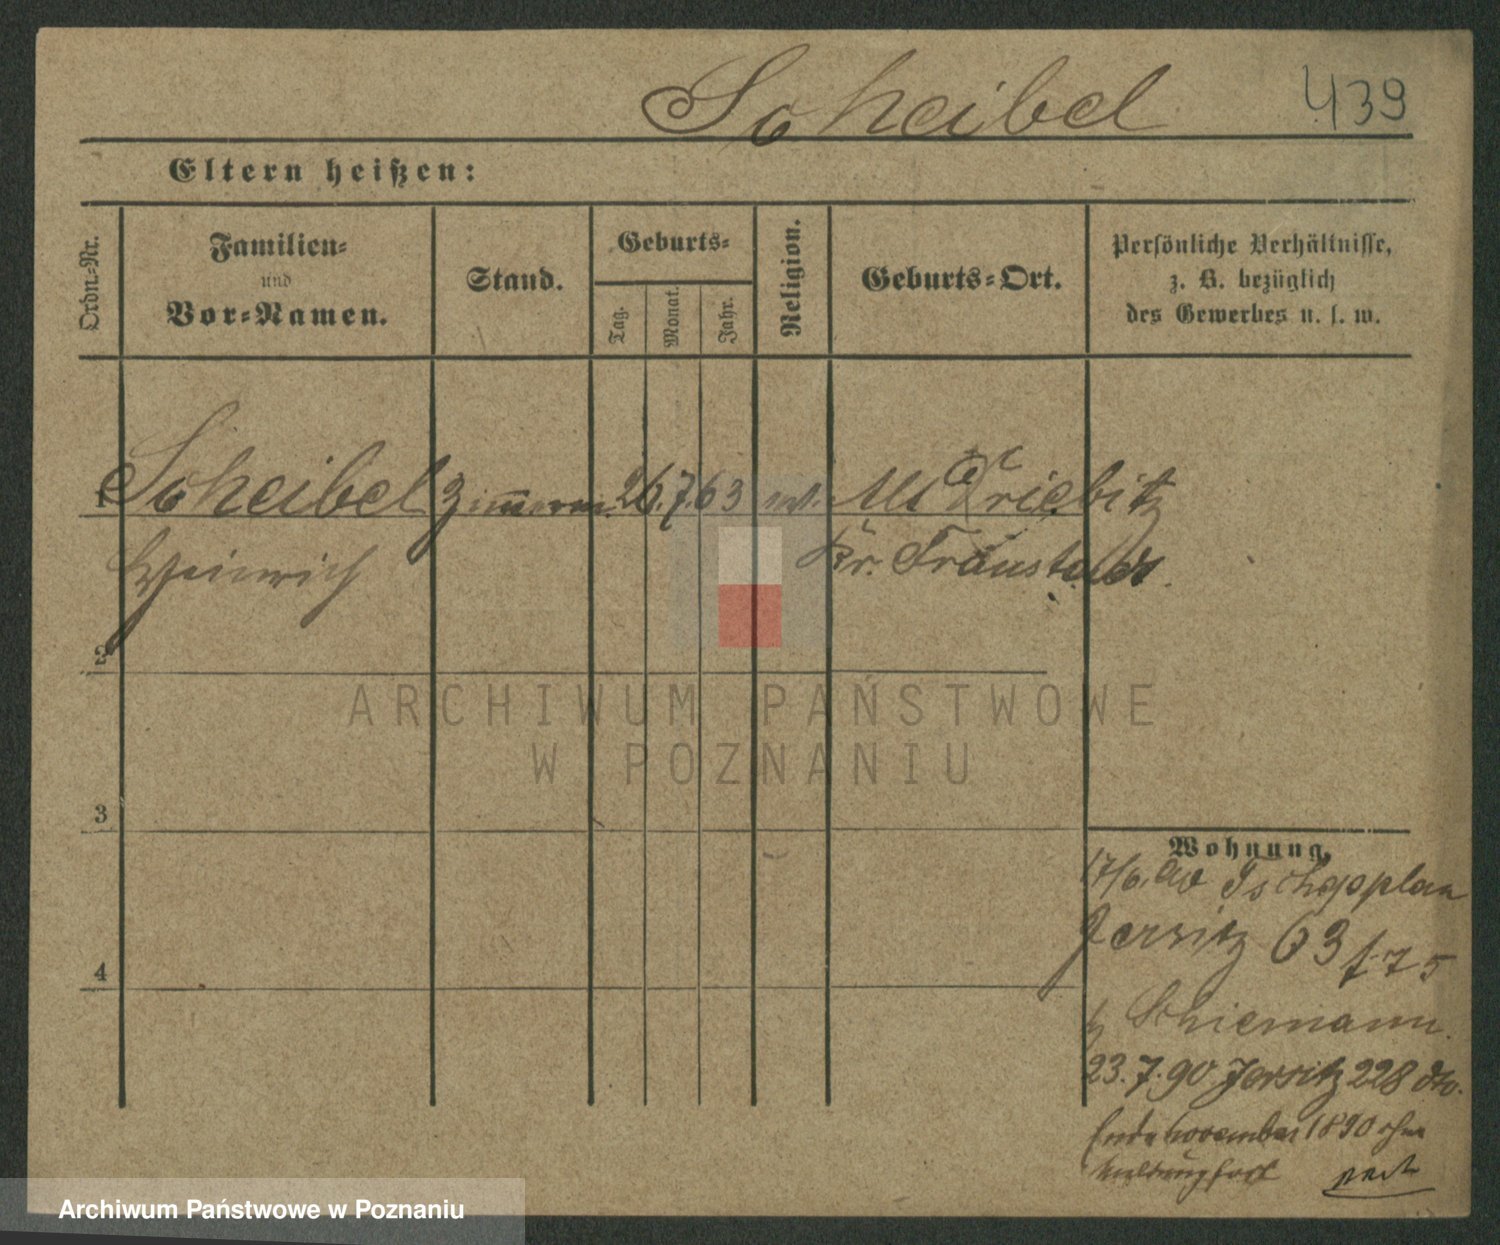 Scheibel 439
Eltern heißen:
Ordn.=Nr.
Familien=
und
Vor=Namen.
Stand.
Geburts=
Tag.
Monat.
Jahr.
Religion.
Geburts=Ort.
Persönliche Verhältnisse,
z. B. bezüglich
des Gewerbes u. s. w.
1 Scheibel Zimmerm. 26. 7. 63 Alt Driebitz
Heinrich Kr. Fraustadt.
2
3
4
Wohnung.
17/6. 90
Jersitz 63 f. 75
Schiemann.
23. 7. 90 Jersitz 228 dto.
Ende November 1890 ohne
ARCHIWUM PAŃSTWOWE
W POZNANIU
Archiwum Państwowe w Poznaniu